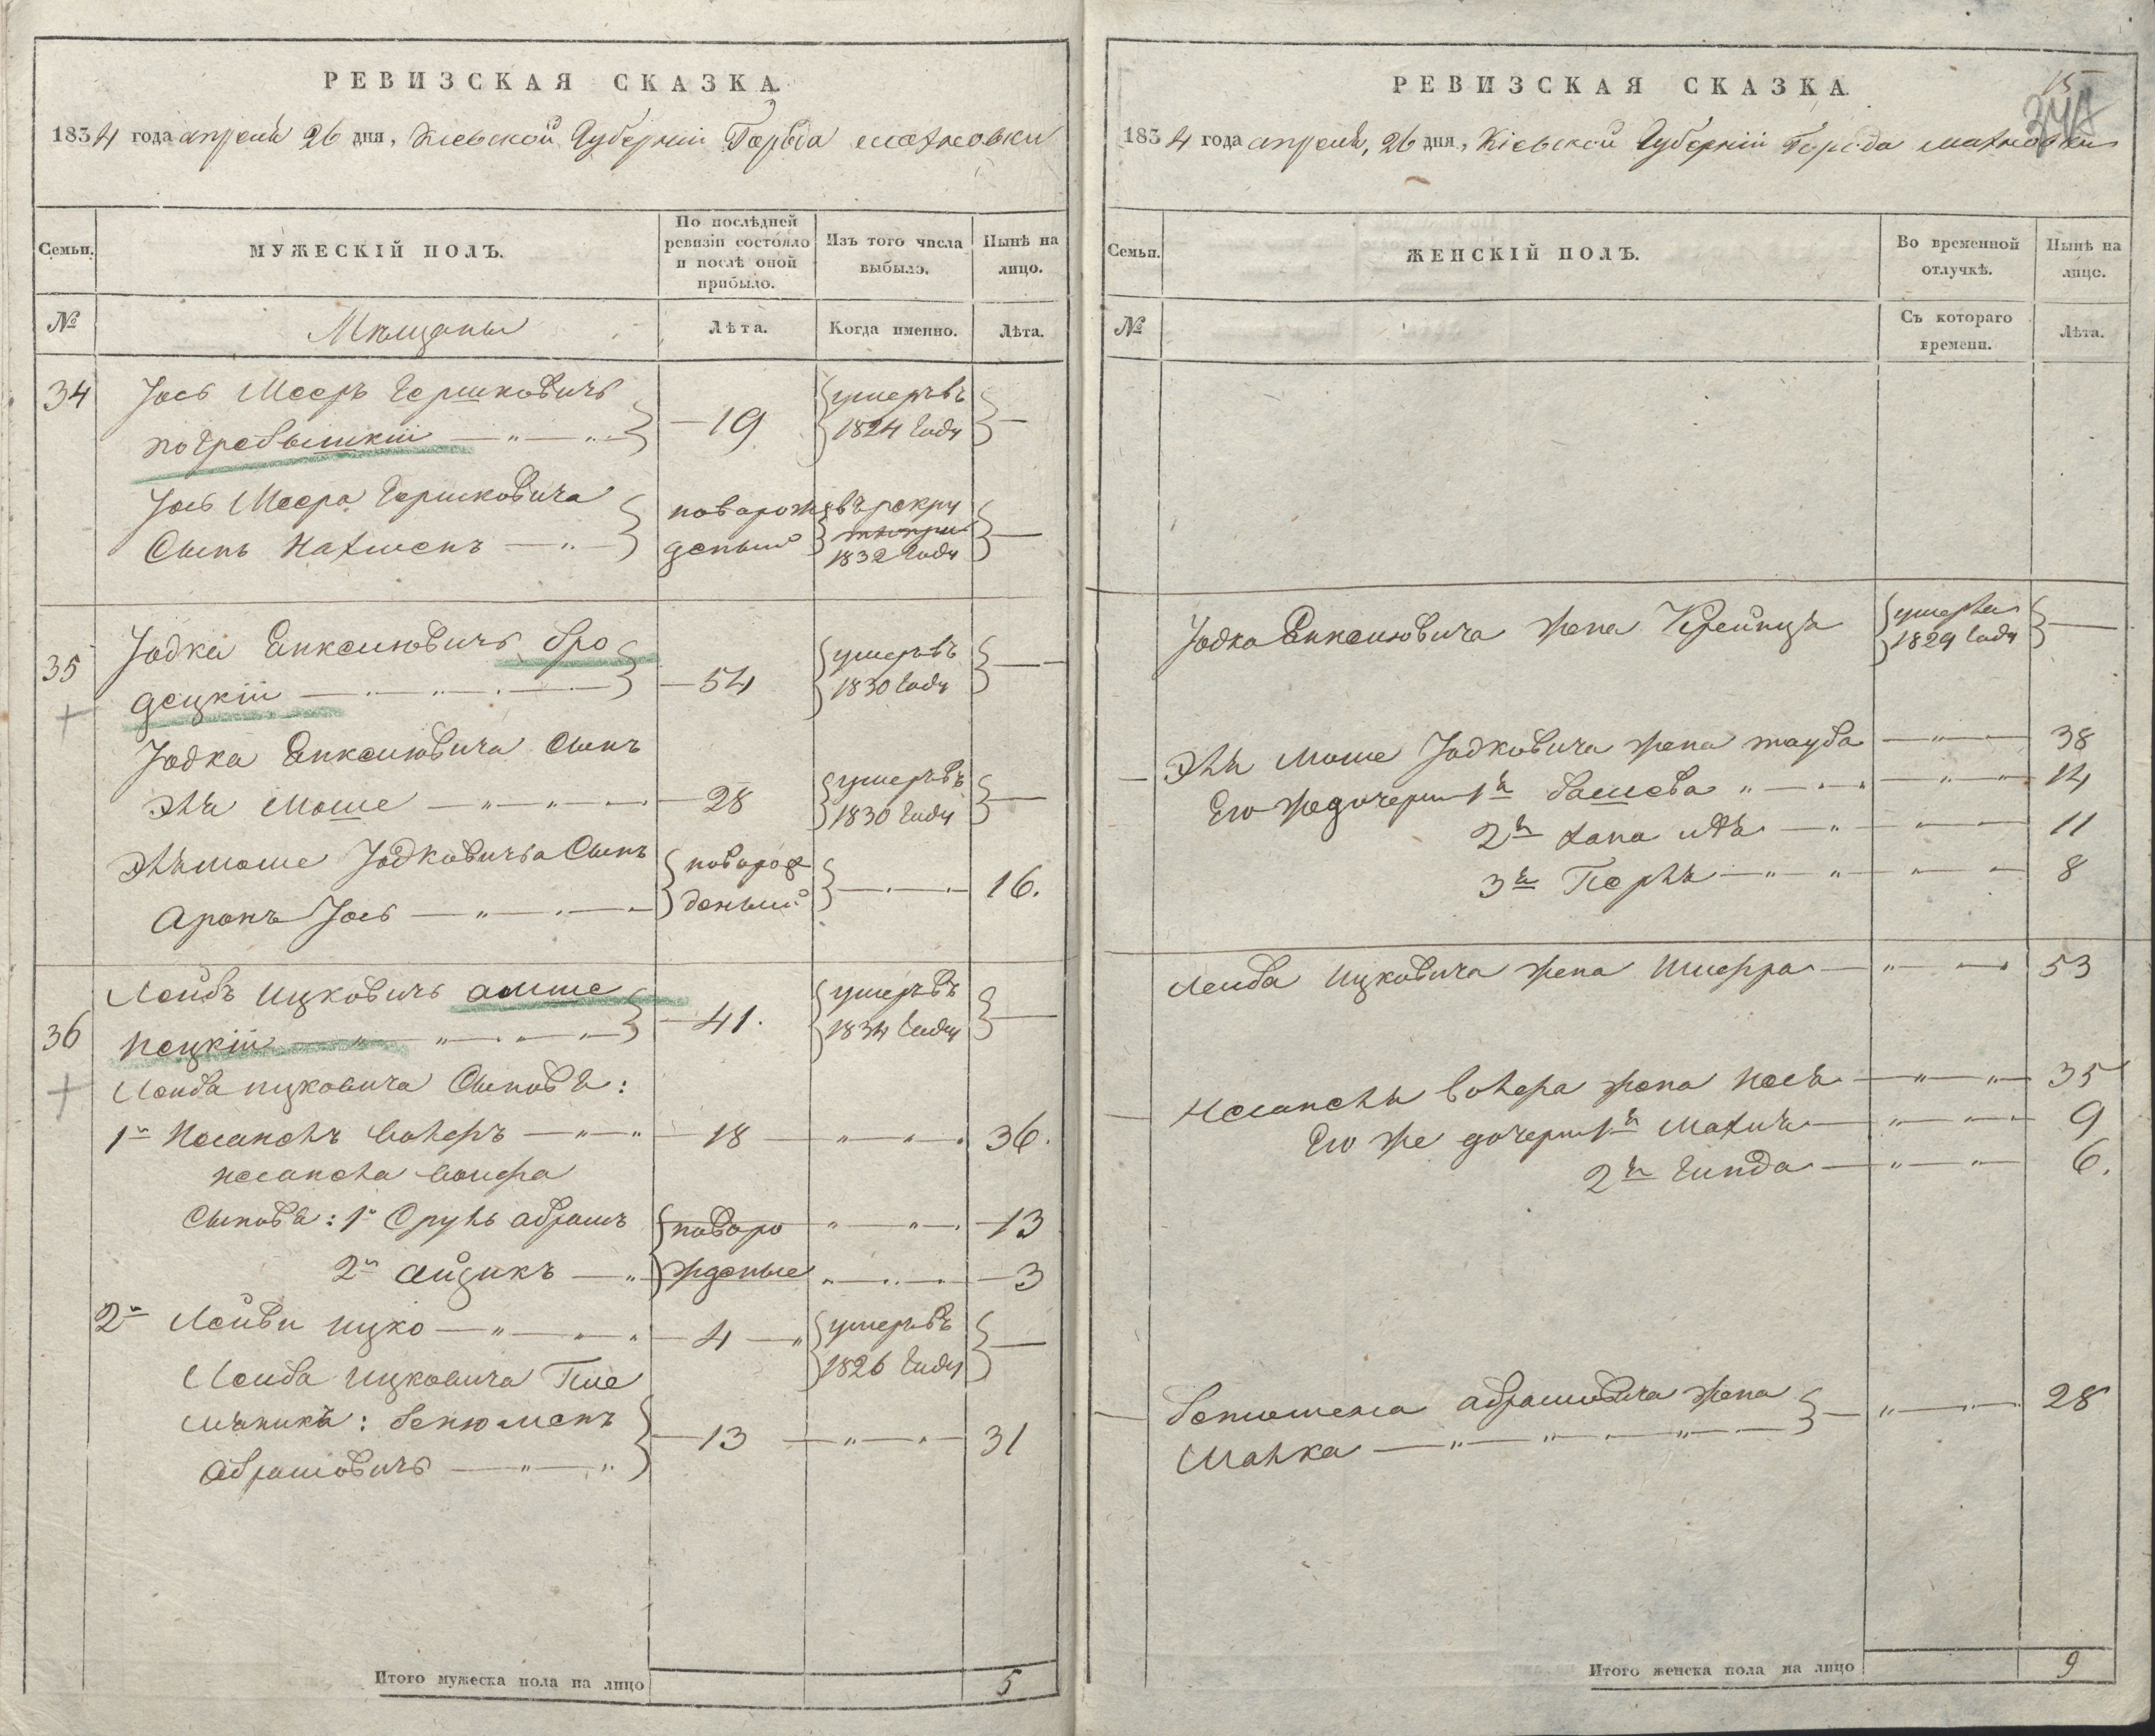 РЕВИЗСКАЯ СКАЗКА.
1834 года апреля 26 дня, Кіевской Губерніи Города Махновки
Семьи.
МУЖЕСКІЙ ПОЛЪ.
По послѣдней ревизіи состояло и послѣ оной прибыло.
Изъ того числа выбыло.
Нынѣ на лицо.
№
Мѣщаны
Лѣта.
Когда именно.
Лѣта.
34 Іось Мееръ Гершковичъ
погребышкій — 19 умеръ въ 1824 году —
Іось Меера Гершковича
Сынъ Нахменъ — новорожденый въ рекру 1832 году —
35 Іодка Янкелювичъ бро
децкій — 54 умеръ въ 1830 году —
Іодка Янкелювича Сынъ
Эль Моше — 28 умеръ въ 1830 году —
Эльмоше Іодковича Сынъ
Аронъ Іось — новорожденый — 16.
36 Лейбъ Ицковичъ
— 41. умеръ въ 1834 году —
Лейба Ицковича Сыновья:
1й — 18 — 36.
Сыновья: 1й Сруль Абрамъ новоро — 13
2й Айзикъ — жденые — 3
2й Ицко — 4 — умеръ въ 1826 году —
Лейба Ицковича Пле
мяникъ: Бенюменъ
Абрамовичъ — 13 — 31
Итого мужеска пола на лицо 5
15
РЕВИЗСКАЯ СКАЗКА
1834 года апреля, 26 дня, Кіевской Губерніи Города Махновки
Семьи.
ЖЕНСКІЙ ПОЛЪ.
Во временной отлучкѣ.
Нынѣ на лицо.
№
Съ котораго времени.
Лѣта.
Іодка Янкелювича жена Крейнця умерла 1829 году —
Эль Моше Іодковича жена Тауба — 38
Его же дочери 1я Башева — 14
2я — 11
3я Перля — 8
Лейба Ицковича жена Шифра — 53
жена — 35
Его же дочери 1я Махля — 9
2я Гинда — 6.
Бенюмена Абрамовича жена
Малка — 28
Итого женска пола на лицо 9